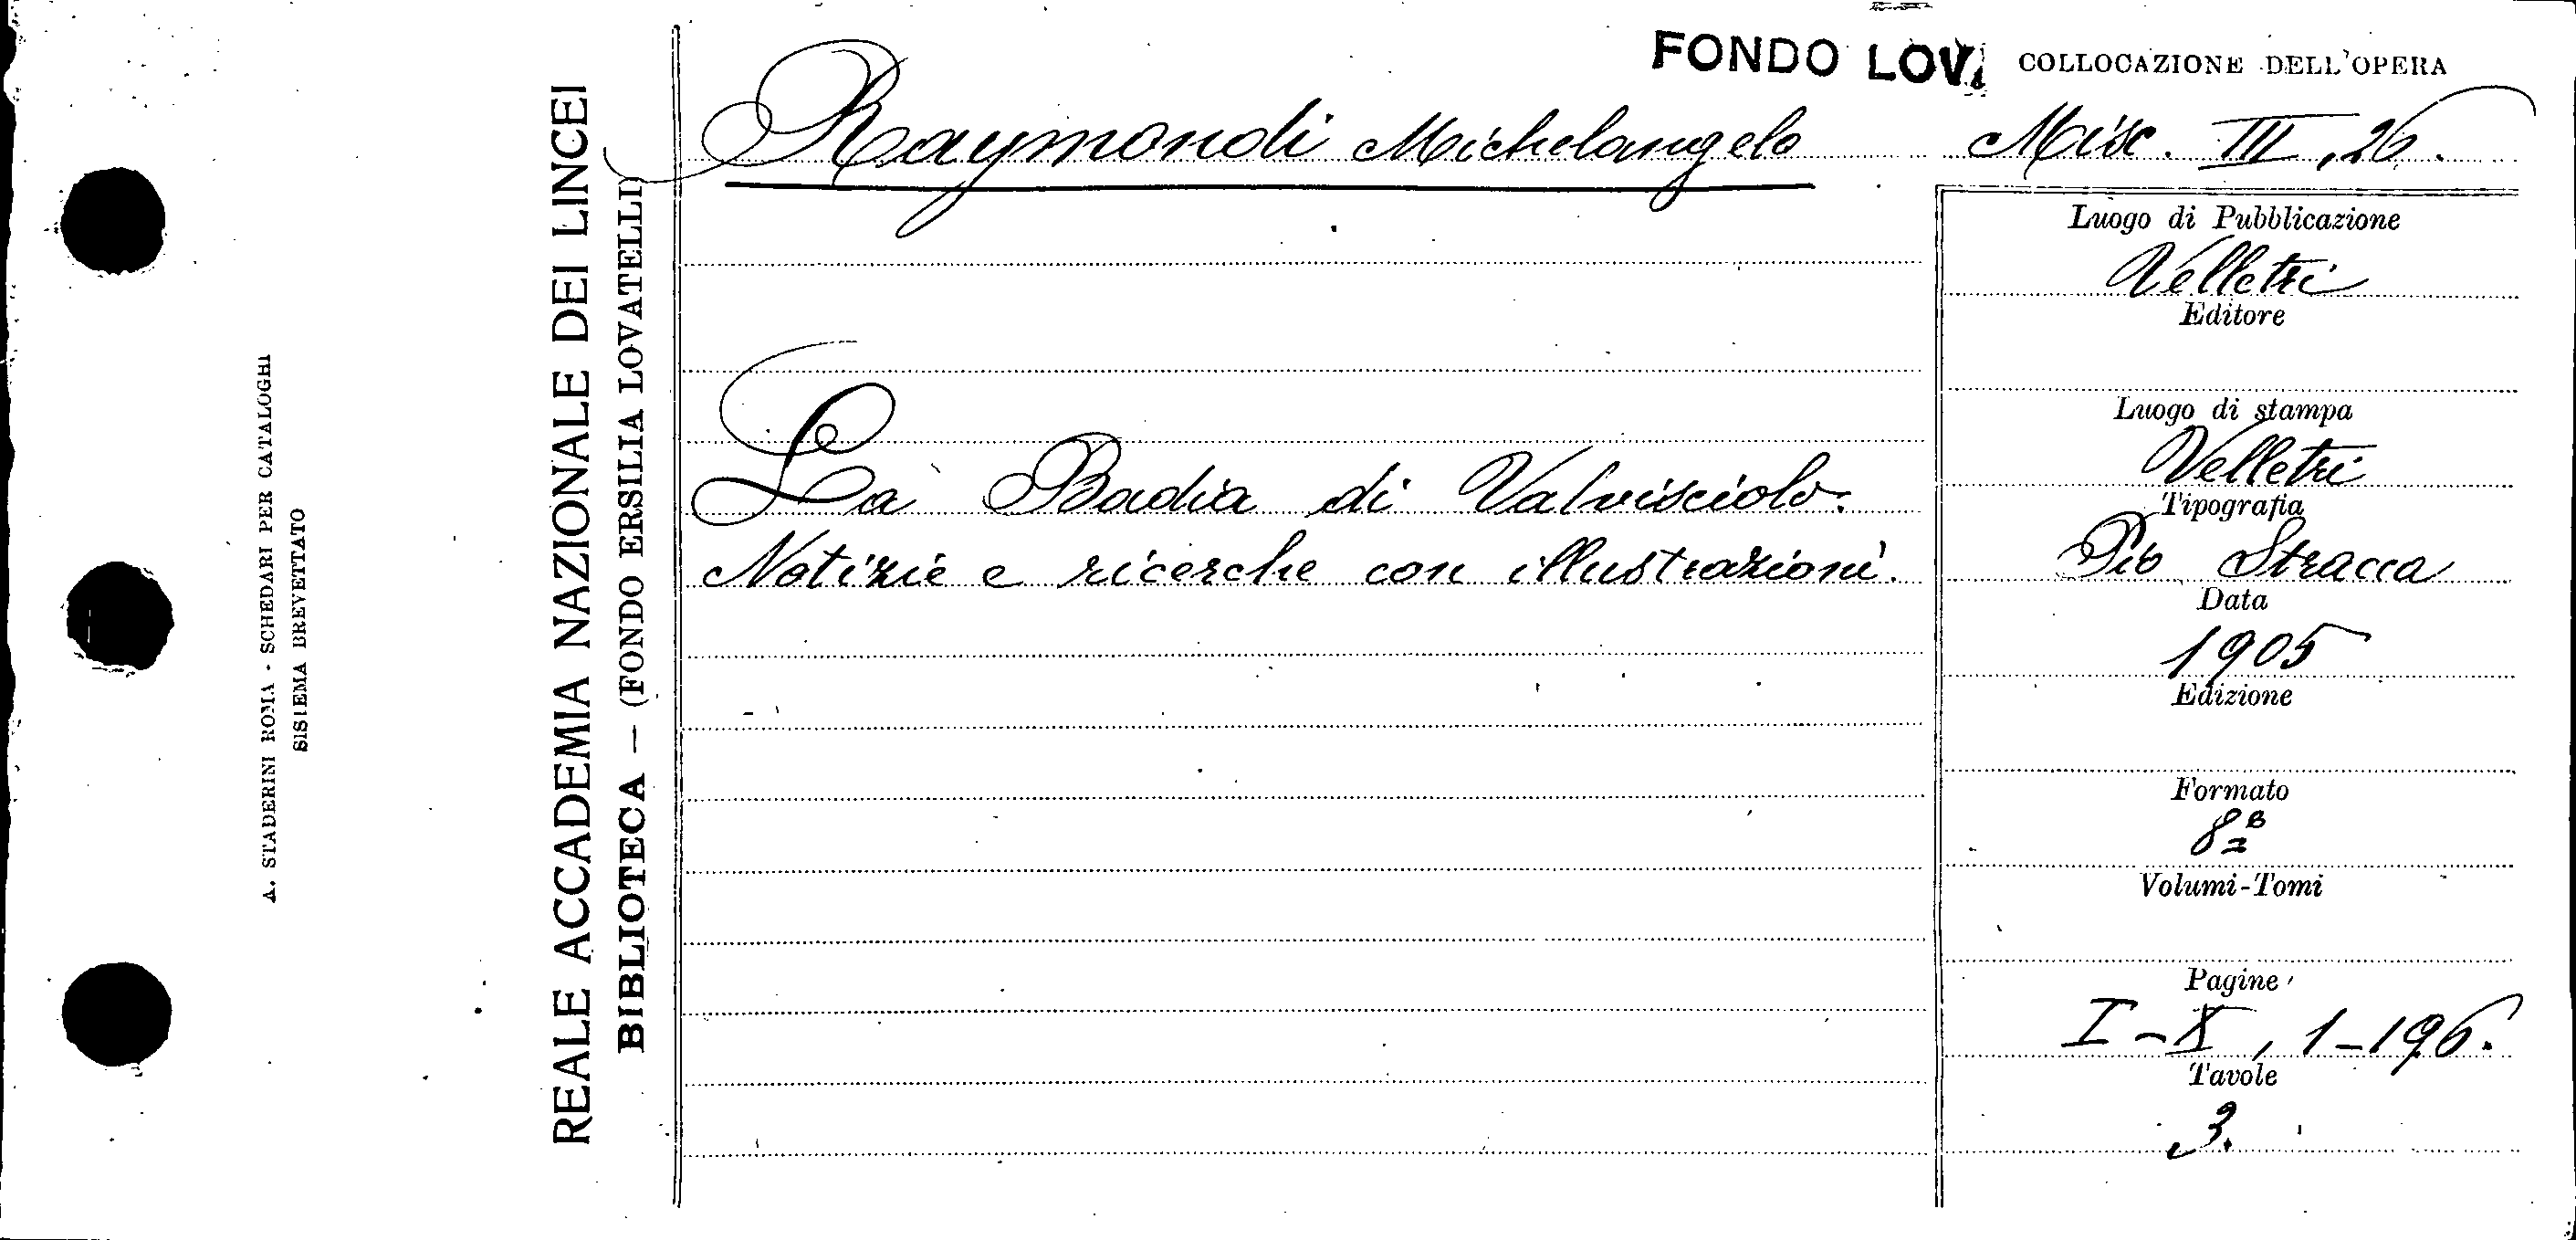 A. STADERINI ROMA - SCHEDARI PER CATALOGHI
SISTEMA BREVETTATO
REALE ACCADEMIA NAZIONALE DEI LINCEI
BIBLIOTECA — (FONDO ERSILIA LOVATELLI)
FONDO LOV.
COLLOCAZIONE DELL'OPERA
Raymondi Michelangelo
Misc. III, 26.
Luogo di Pubblicazione
Velletri
Editore
Luogo di stampa
Velletri
La Badia di Valvisciolo.
Tipografia
Notizie e ricerche con illustrazioni.
Pio Stracca
Data
1905
Edizione
Formato
8º
Volumi-Tomi
Pagine
I-X, 1-196.
Tavole
3.